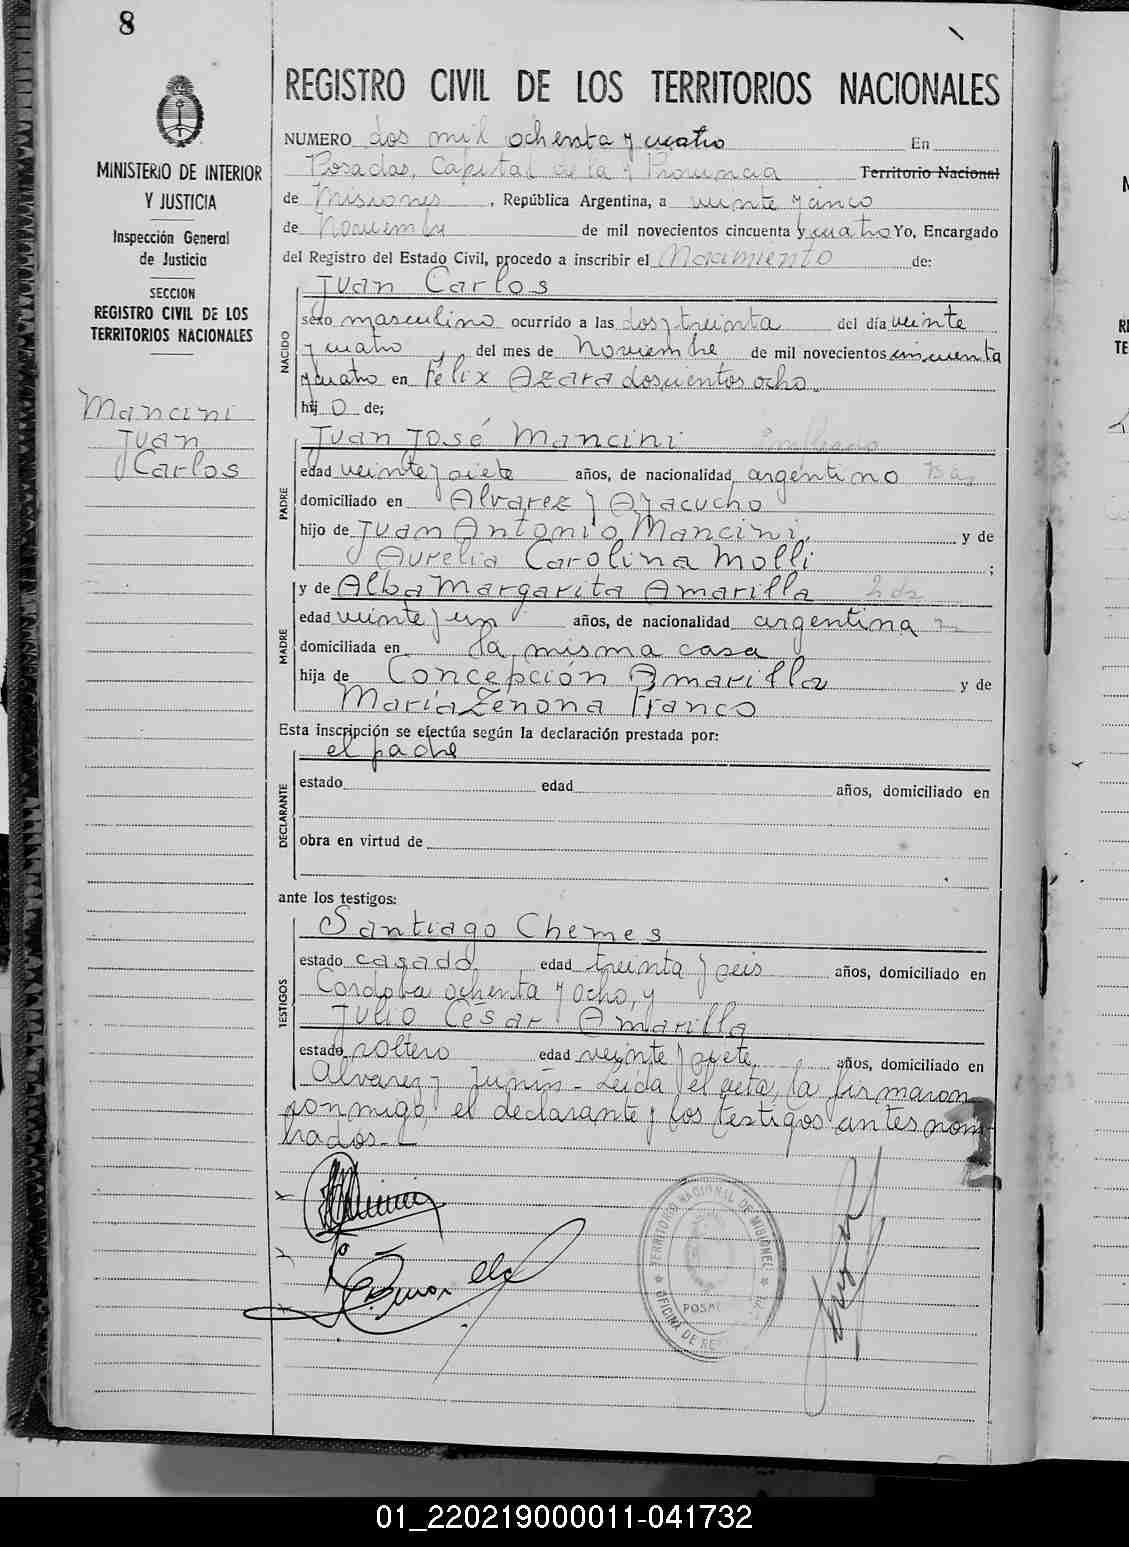 8
REGISTRO CIVIL DE LOS TERRITORIOS NACIONALES
MINISTERIO DE INTERIOR
Y JUSTICIA
Inspección General
de Justicia
SECCION
REGISTRO CIVIL DE LOS
TERRITORIOS NACIONALES
Mancini
Juan
Carlos
NUMERO dos mil ochenta y cuatro En
Posadas, Capital de la Provincia Territorio Nacional
de Misiones, República Argentina, a veinte y cinco
de Noviembre de mil novecientos cincuenta y cuatro Yo, Encargado
del Registro del Estado Civil, procedo a inscribir el Nacimiento de:
Juan Carlos
NACIDO
sexo masculino ocurrido a las dos y treinta del día veinte
y cuatro, del mes de Noviembre de mil novecientos cincuenta
y cuatro en Félix Azara doscientos ocho.
hij o de;
PADRE
Juan José Mancini Empleado
edad veinte y siete años, de nacionalidad argentino
domiciliado en Alvarez y Ayacucho
hijo de Juan Antonio Mancini, y de
Aurelia Carolina Molli ;
MADRE
y de Alba Margarita Amarilla
edad veinte y un años, de nacionalidad argentina
domiciliada en la misma casa
hija de Concepción Amarilla y de
María Zenona Franco
Esta inscripción se efectúa según la declaración prestada por:
el padre
DECLARANTE
estado edad años, domiciliado en
obra en virtud de
ante los testigos:
TESTIGOS
Santiago Chemes
estado casado edad treinta y seis años, domiciliado en
Cordoba ochenta y ocho, y
Julio César Amarilla
estado soltero edad veinte y siete años, domiciliado en
Alvarez y Junín - Leida el acta, la firmaron
conmigo, el declarante y los testigos antes nom-
brados.-
TERRITORIO NACIONAL DE MISIONES
POSADAS
OFICINA DE
01_220219000011-041732